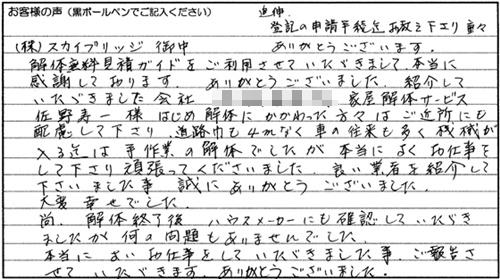 お客様の声（黒ボールペンでご記入ください）
追伸
登記の申請手続迄お教え下さり重々
ありがとうございます。
(株)スカイブリッジ 御中
解体無料見積ガイドをご利用させていただきまして本当に
感謝しております。 ありがとうございました 紹介して
いただきました会社 家屋解体サービス
佐野寿一様 はじめ解体にかかわった方々は ご近所にも
配慮して下さり 道路巾も4mなく車の往来も多く機械が
入る迄は手作業の解体でしたが本当によくお仕事を
して下さり頑張ってくださいました 良い業者を紹介して
下さいました事 誠に ありがとうございました。
大変幸せでした。
尚、解体終了後 ハウスメーカーにも確認していただき
ましたが何の問題もありませんでした。
本当に よい お仕事をしていただきました事、ご報告さ
せて いただきます。ありがとうございました。